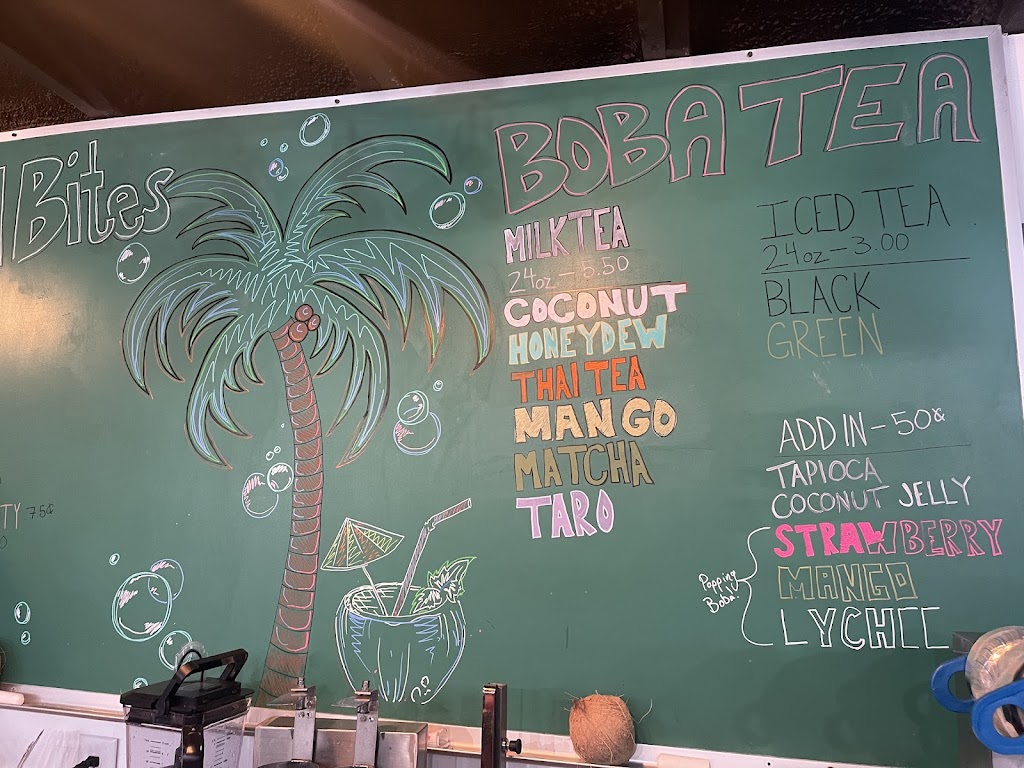 Bites
TY 75¢
BOBA TEA
MILK TEA
24oz - 5.50
COCONUT
HONEYDEW
THAI TEA
MANGO
MATCHA
TARO
ICED TEA
24oz - 3.00
BLACK
GREEN
ADD IN - 50¢
TAPIOCA
COCONUT JELLY
STRAWBERRY
MANGO
LYCHEE
Popping
Boba